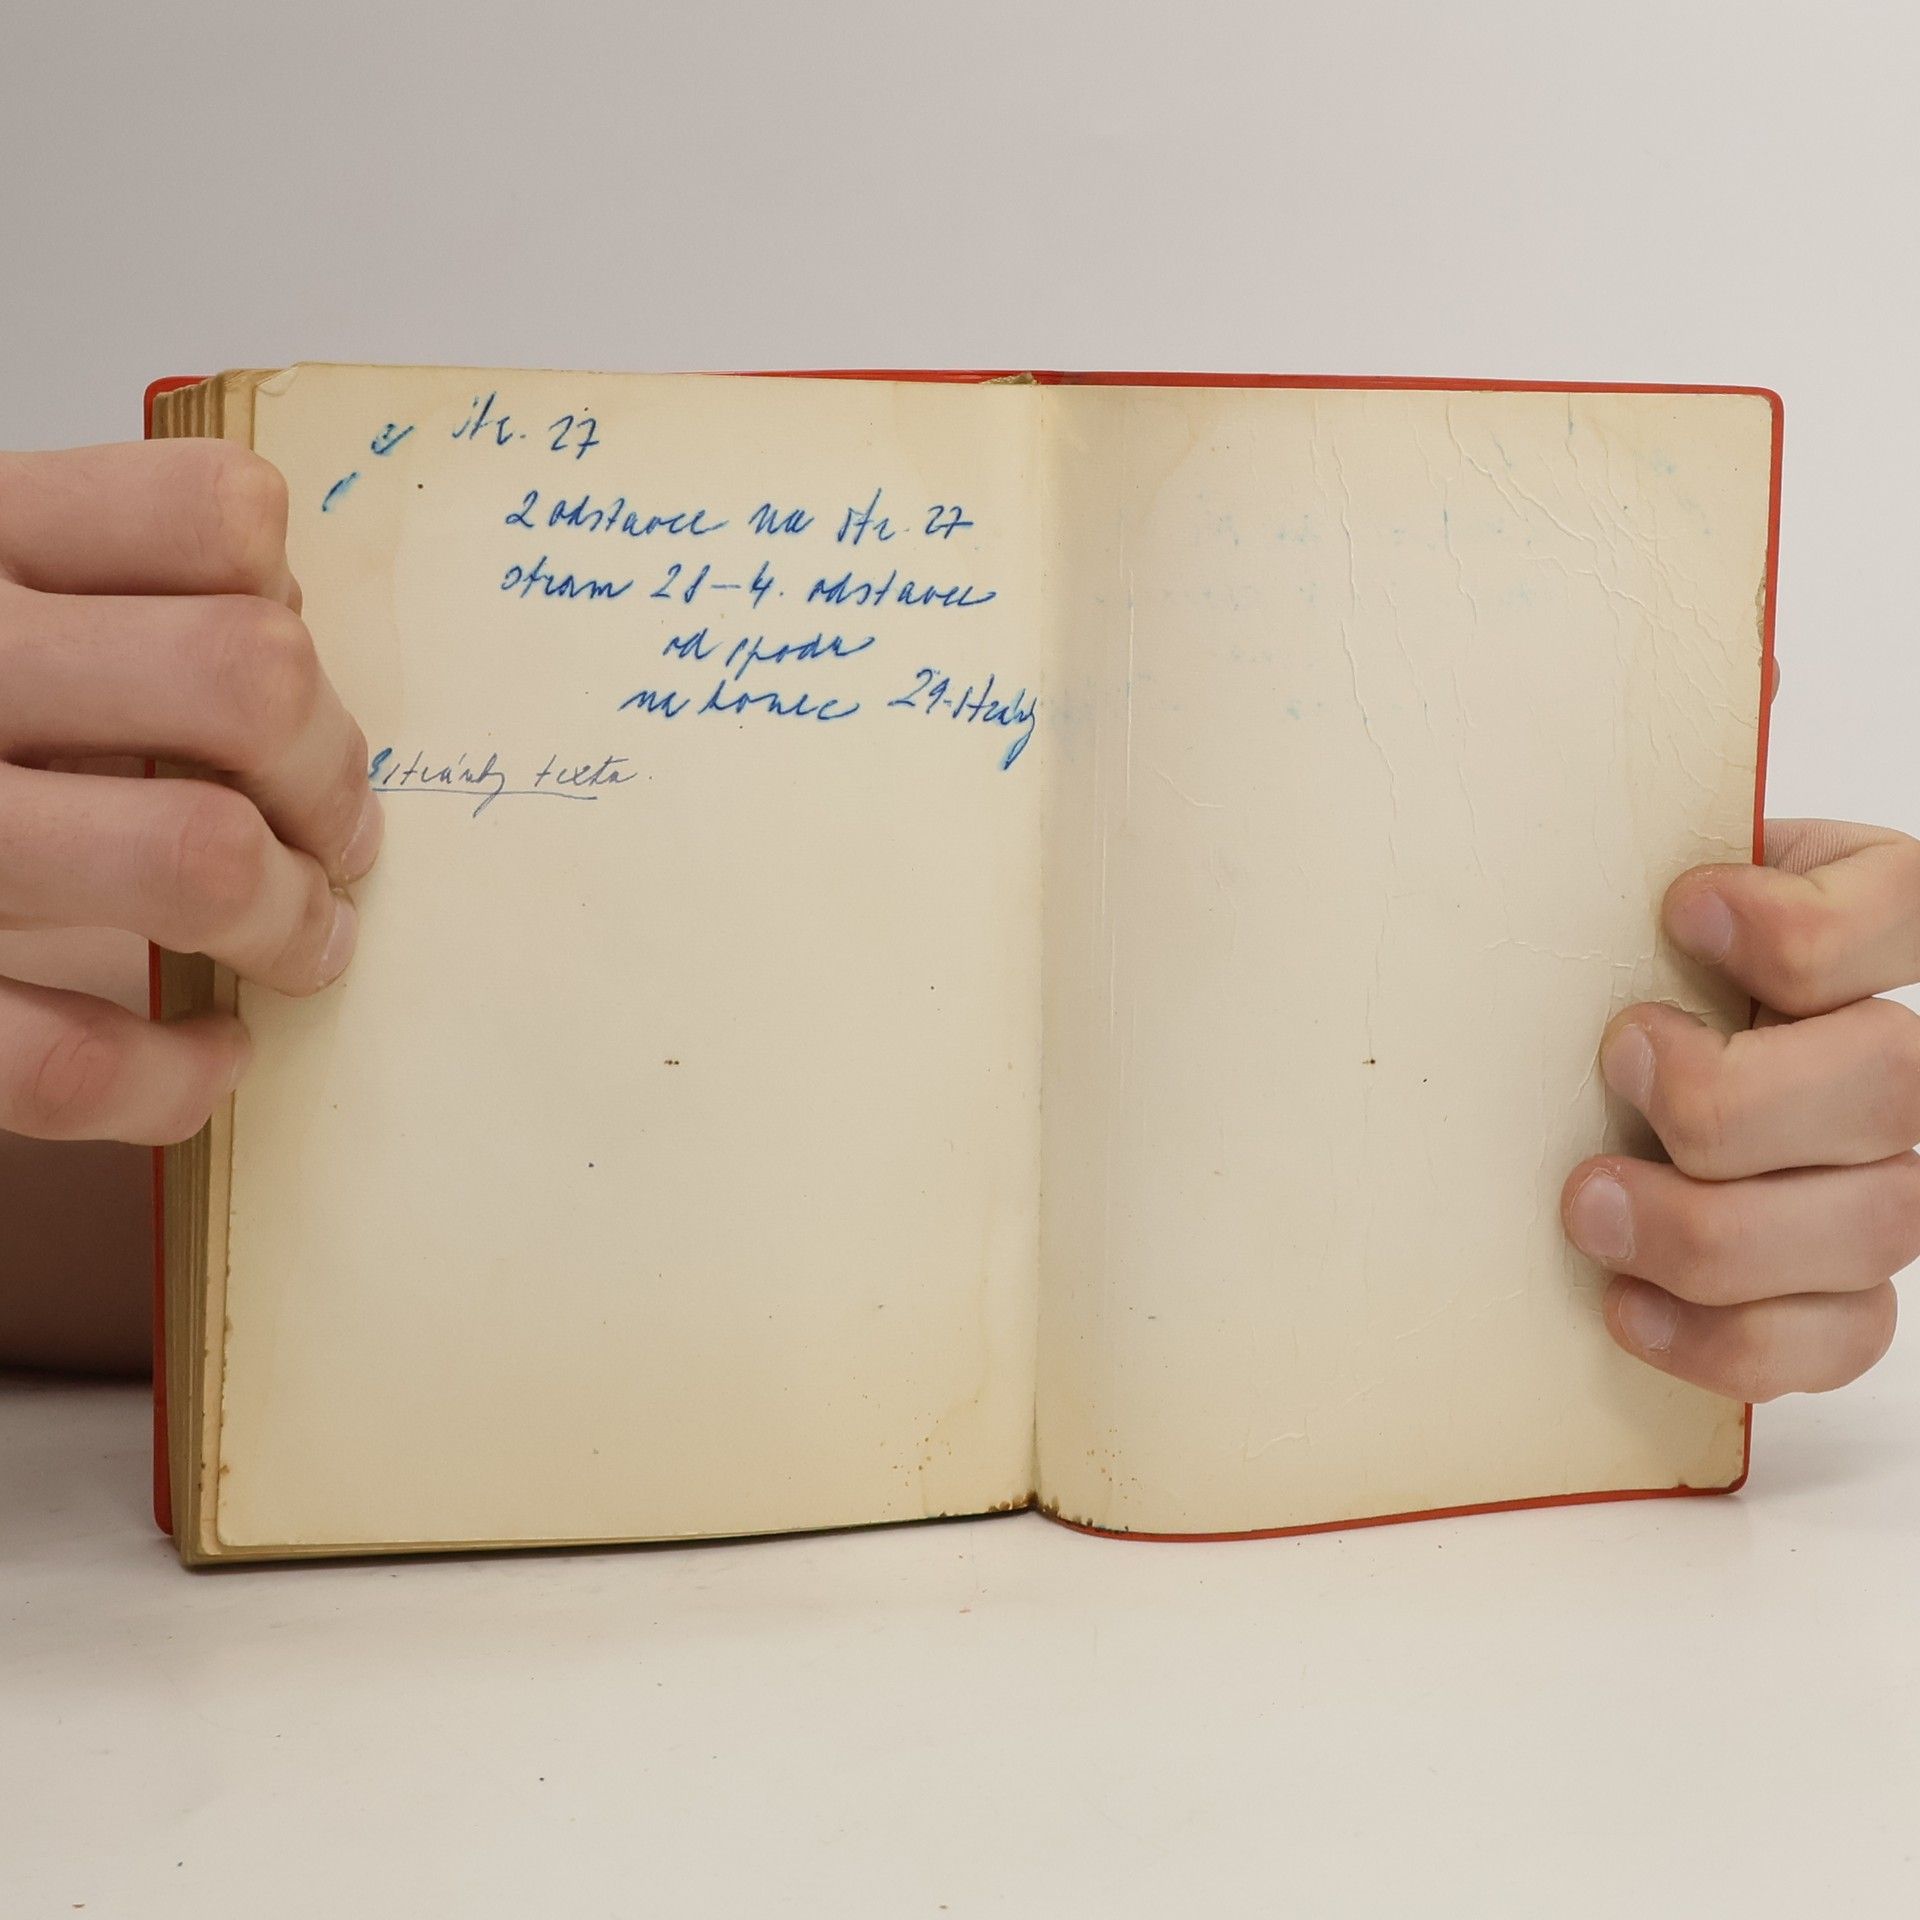 str. 27
2 odstavce na str. 27
stran 28 – 4. odstavec
od spodu
na konec 29. stránky
3 stránky textu.